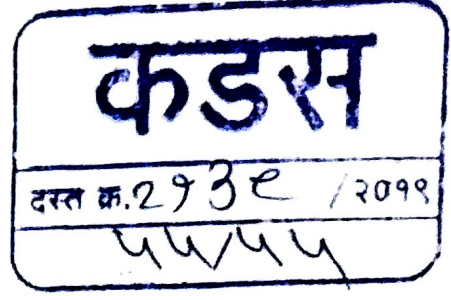 कडस
दस्त क्र.२१३९ /२०१९
५५/५५